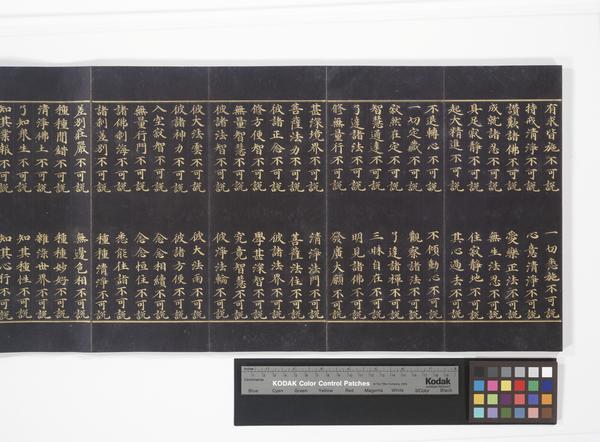 有求皆施不可說 一切悉施不可說
持戒清淨不可說 心意清淨不可說
讚歎諸佛不可說 愛樂正法不可說
成就諸忍不可說 無生法忍不可說
具足寂靜不可說 住寂靜地不可說
起大精進不可說 其心過去不可說
不退轉心不可說 不傾動心不可說
一切定藏不可說 觀察諸法不可說
寂然在定不可說 了達諸禪不可說
智慧通達不可說 三昧自在不可說
了達諸法不可說 明見諸佛不可說
修無量行不可說 發廣大願不可說
甚深境界不可說 清淨法門不可說
菩薩法力不可說 菩薩法住不可說
彼諸正念不可說 彼諸法界不可說
修方便智不可說 學甚深智不可說
無量智慧不可說 究竟智慧不可說
彼諸法智不可說 彼淨法輪不可說
彼大法雲不可說 彼大法雨不可說
彼諸神力不可說 彼諸方便不可說
入空寂智不可說 念念相續不可說
無量行門不可說 念念恒住不可說
諸佛剎海不可說 悉能往詣不可說
諸剎差別不可說 種種清淨不可說
差別莊嚴不可說 無邊色相不可說
種種間錯不可說 種種妙好不可說
清淨佛土不可說 雜染世界不可說
了知衆生不可說 知其種性不可說
知其業報不可說 知其心行不可說
KODAK Color Control Patches
Kodak
Blue Cyan Green Yellow Red Magenta White 3/Color Black